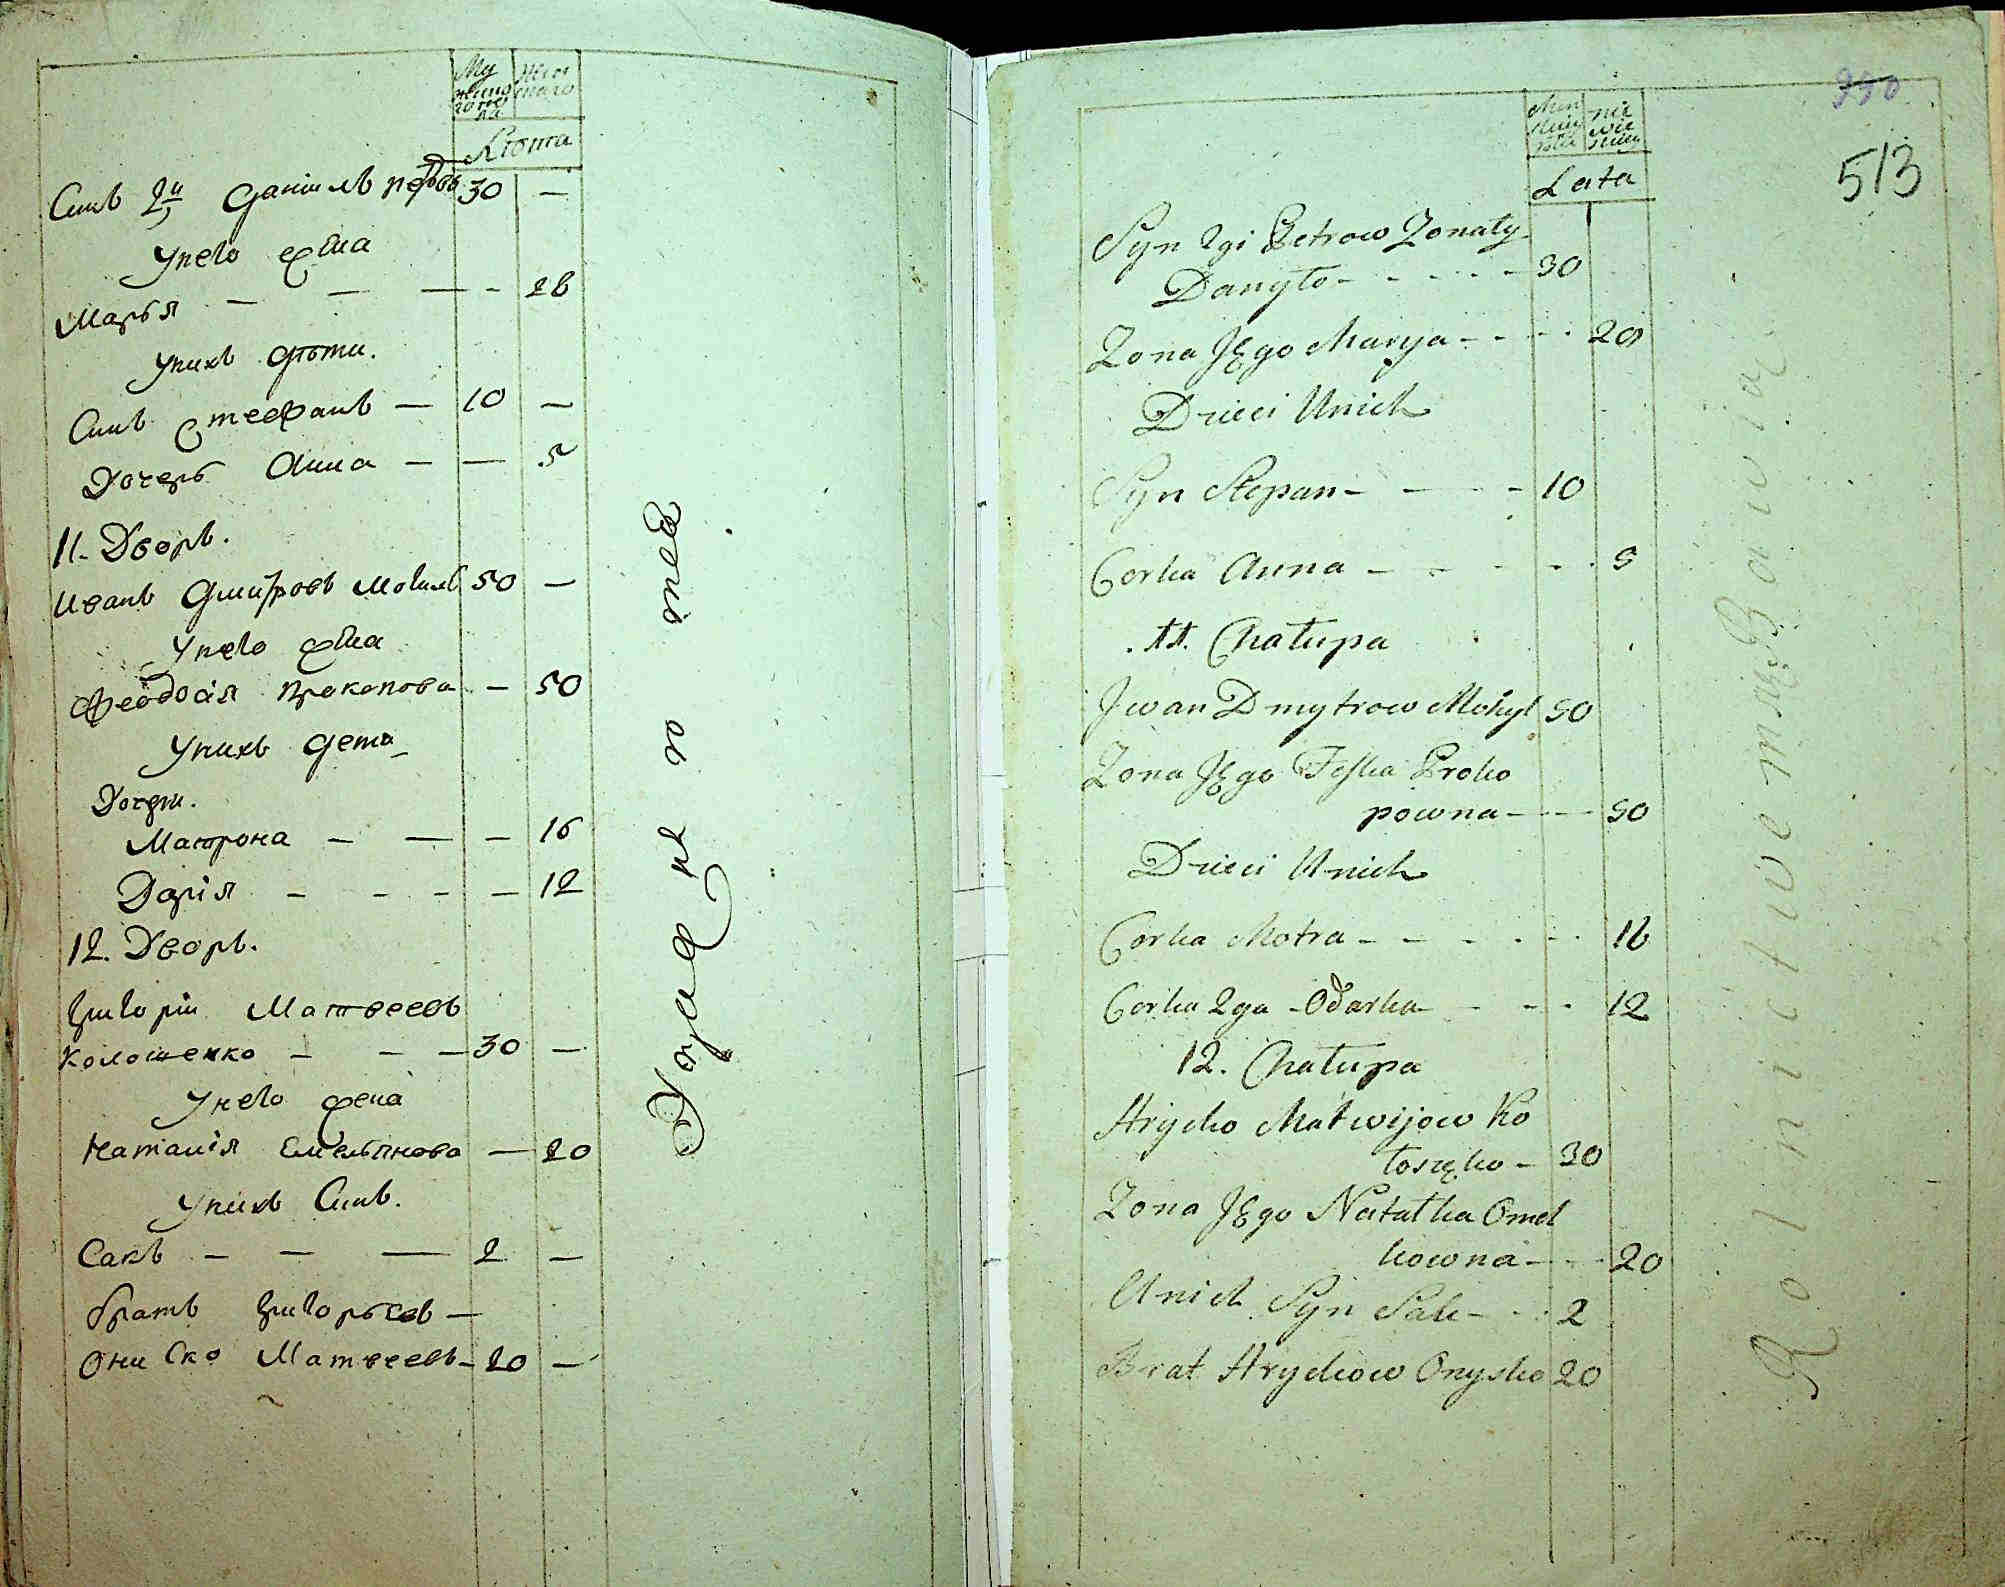 Лѣта
Сынъ 2й Даніилъ петровъ 30 —
У него жена
Марья — — — - 28
У нихъ дѣти.
Сынъ Стефанъ — 10 —
Дочерь Анна — — 5
11. Дворъ.
Иванъ Дмитровъ Могила 50 —
У него жена
Феодосія Прокопова — 50
У нихъ дети
Дочери.
Матрона — — — 16
Дарія - - - — 12
12. Дворъ.
Григорій Матвеевъ
Колошенко - - — 30 —
У него жена
Наталія Емельянова — 20
У нихъ Сынъ.
Сакъ — — — 2 —
братъ Григорьевъ —
Ониско Матвеевъ - 20 —
513
Lata
Syn 2gi Petrow Zonaty
Danyło - - - - - 30
Zona Jego Marya - - - - 28
Dzieci Unich
Syn Stepan - — - 10
Corka Anna — - - - - 5
11. Chałupa
Jwan Dmytrow Mohyl 50
Zona Jego Feska Proko
powna — — 50
Dzieci Unich
Corka Motra - - - - - 16
Corka 2ga Odarka - - - 12
12. Chałupa
Hryćko Matwijow Ko
łoszęko — 30
Zona Jego Natałka Omel
kowna - - - 20
Unich Syn Sak - - 2
Brat Hryćkow Onysko 20
Rolnictwem się Bawią